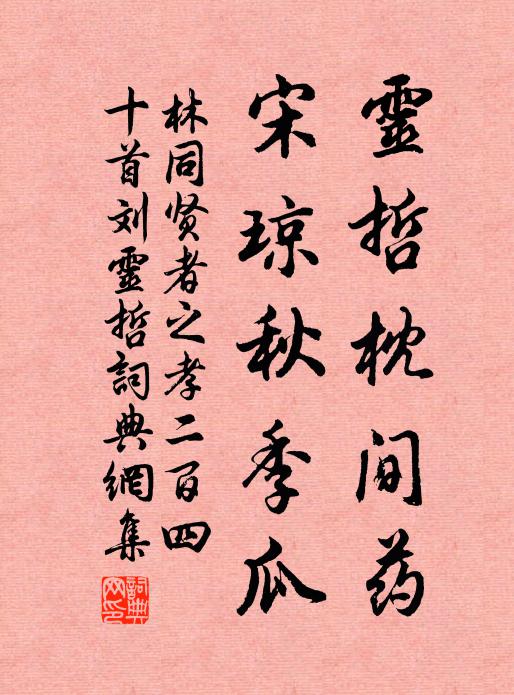 靈哲枕间药
宋琼秋季瓜
林同贤者之孝二百四
十首刘靈哲詞典網集
詞典網印